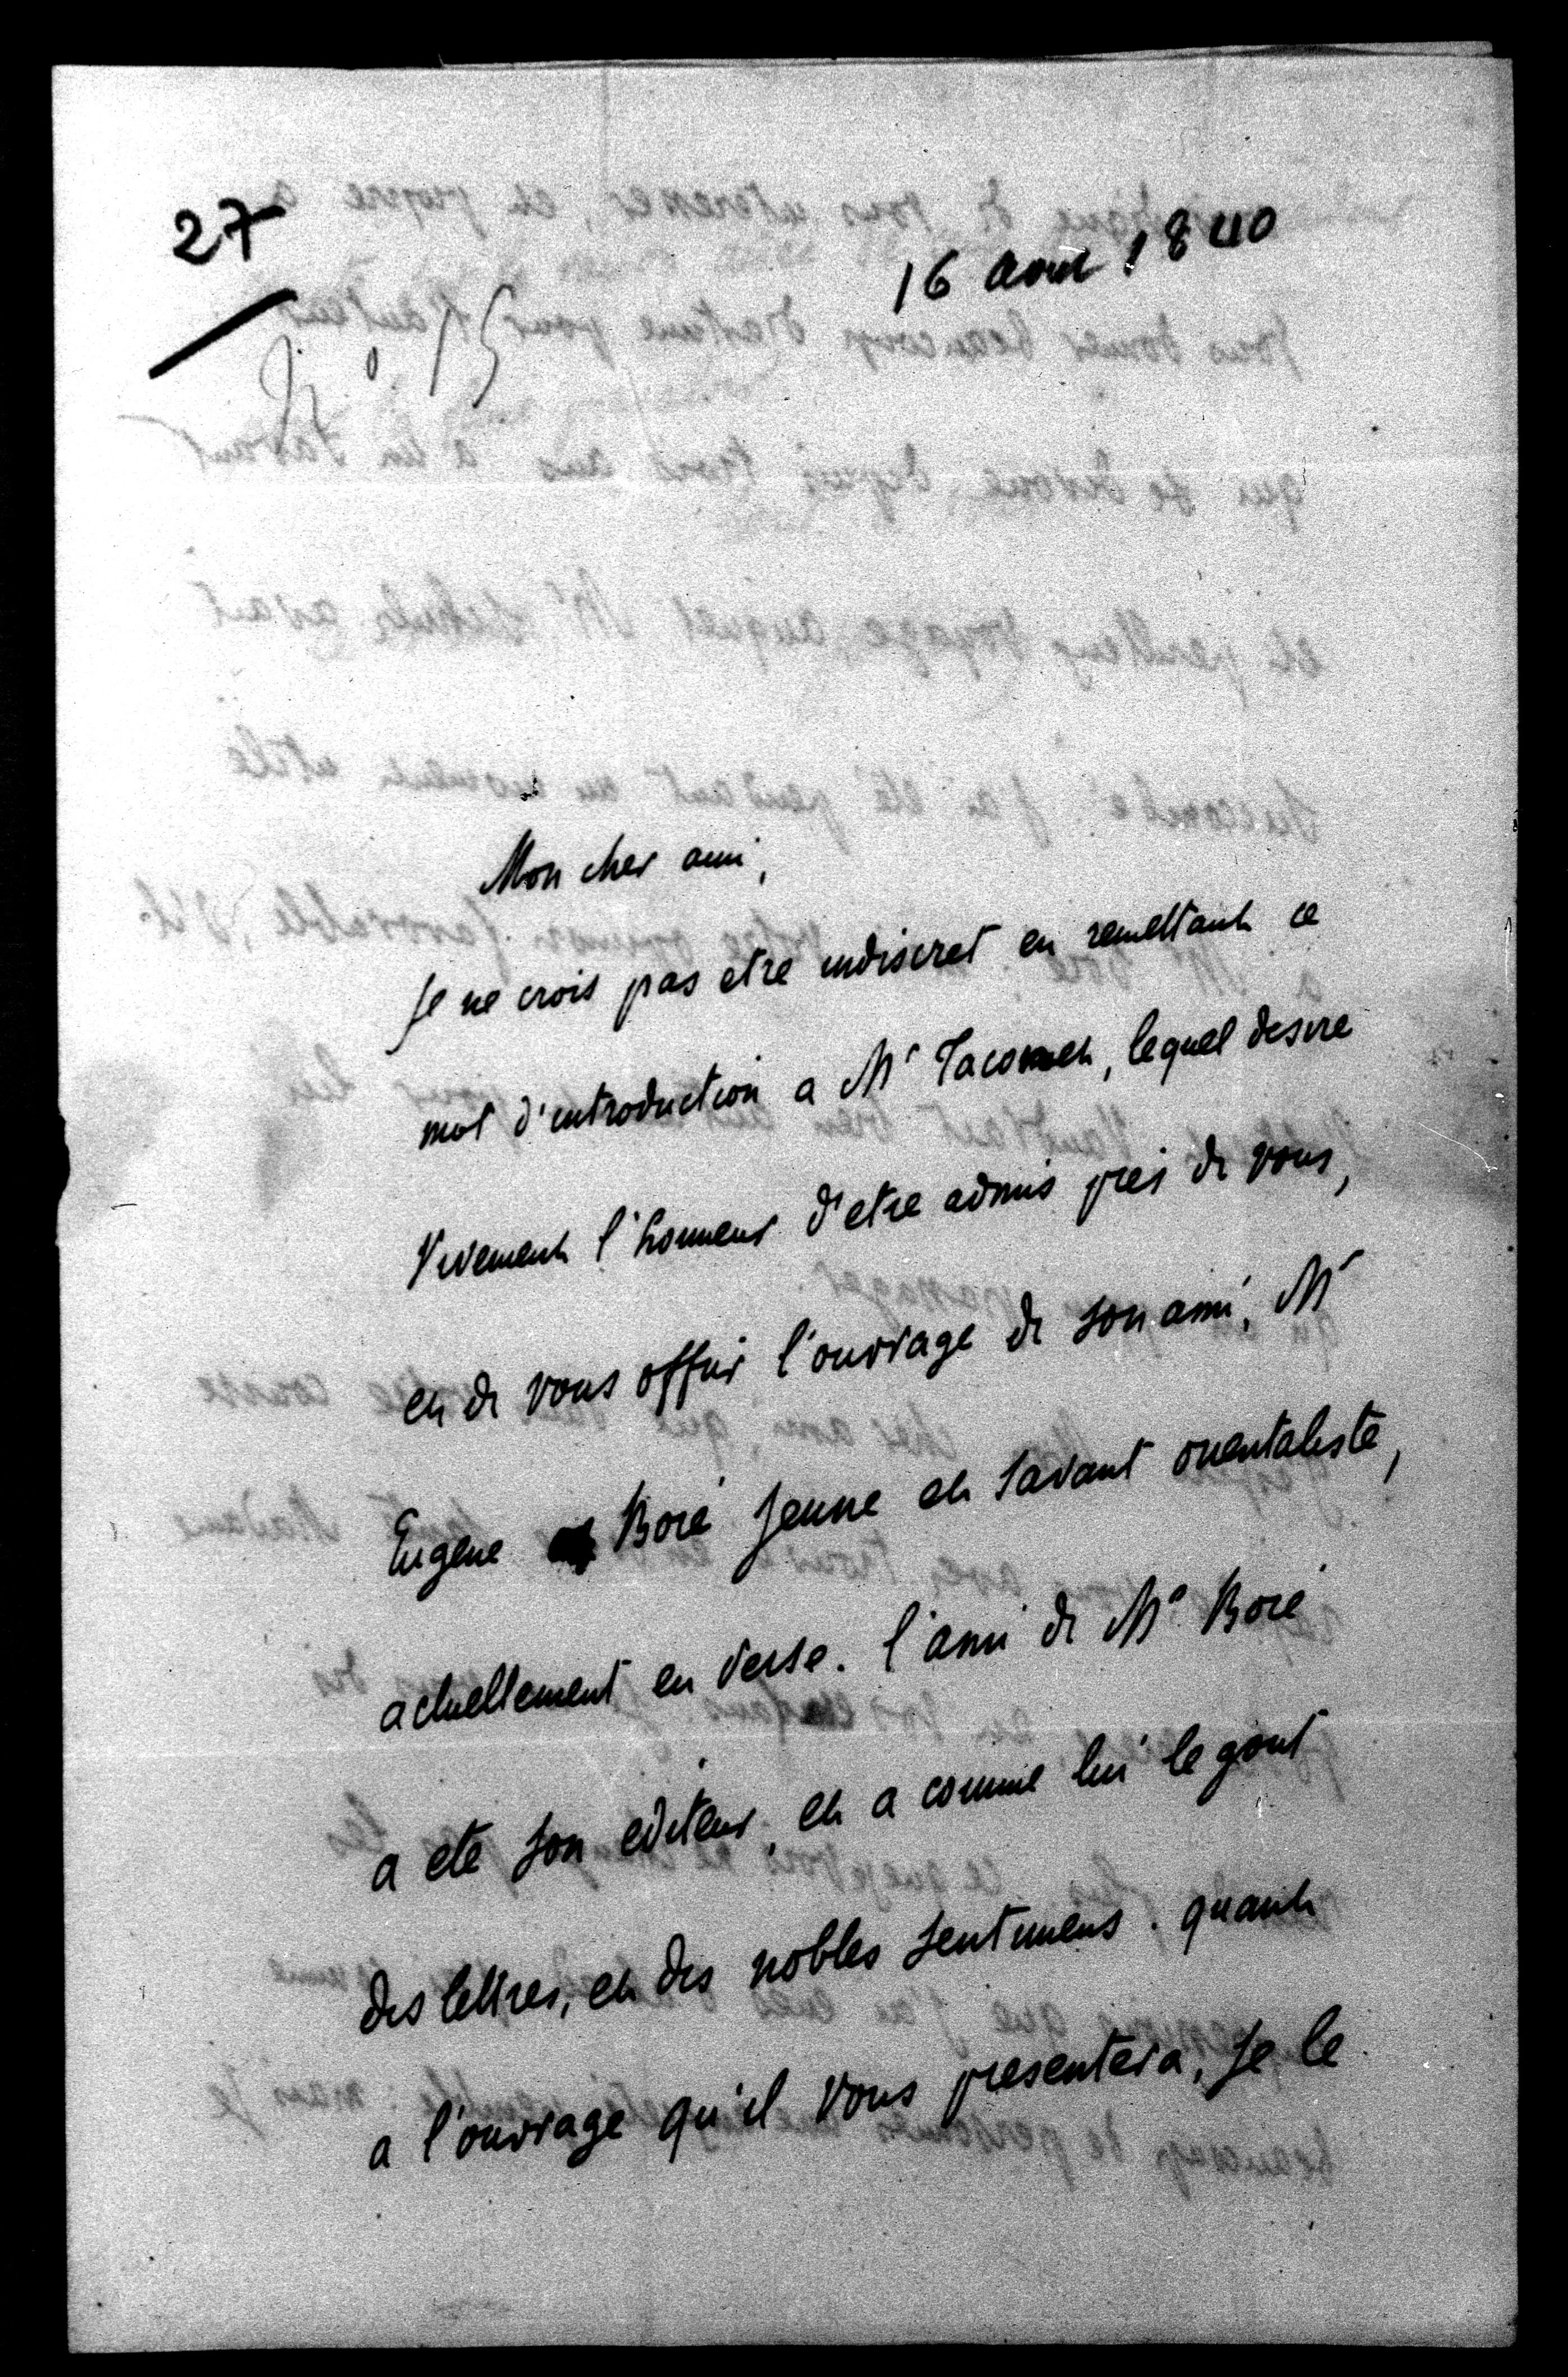 27
16 aout 1840
N° 15
Mon cher ami,
Je ne crois pas etre indiscret en remettant ce
mot d'introduction a Mr Taconet, lequel desire
Vivement l'honneur d'etre admis pres de vous,
et de vous offrir l'ouvrage de son ami, Mr
Eugene Boré jeune et savant orientaliste,
actuellement en Perse. l'ami de Mr Boré
a eté son editeur, et a comme lui le gout
des lettres, et des nobles sentimens. quant
a l'ouvrage qu'il vous presentera, Je le